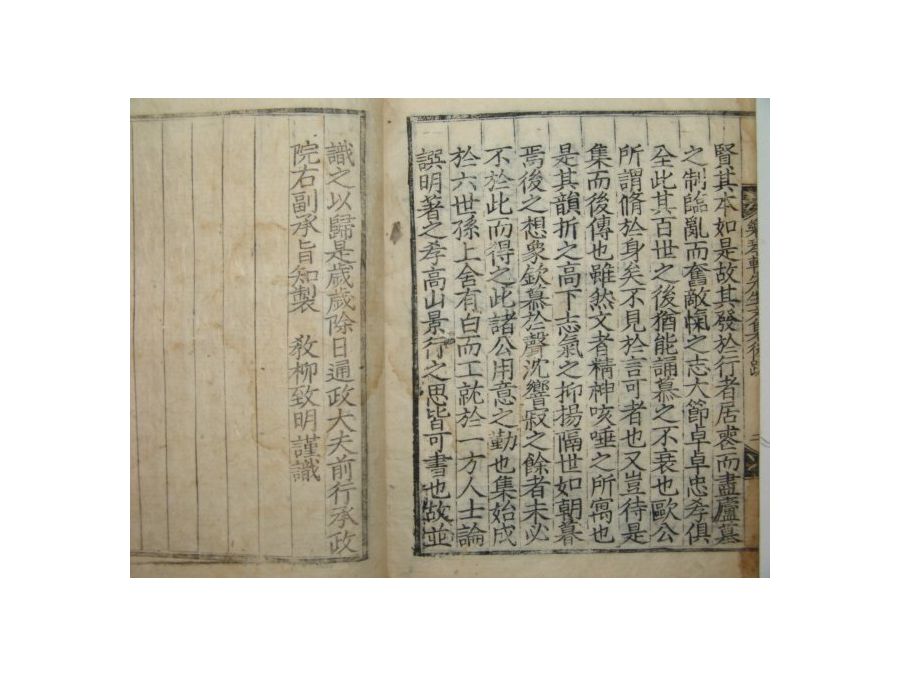 賢其本如是故其發於行者居喪而盡廬墓
之制臨亂而奮敵愾之志大節卓卓忠孝俱
全此其百世之後猶能誦慕之不衰也歐公
所謂脩於身矣不見於言可者也又豈待是
集而後傳也雖然文者精神咳唾之所寓也
是其韻折之高下志氣之抑揚隔世如朝暮
焉後之想象欽慕於聲沈響寂之餘者未必
不於此而得之此諸公用意之勤也集始成
於六世孫上舍有白而工就於一方人士論
譔明著之孝高山景行之思皆可書也故並
識之以歸是歲歲除日通政大夫前行承政
院右副承旨知製　教柳致明謹識